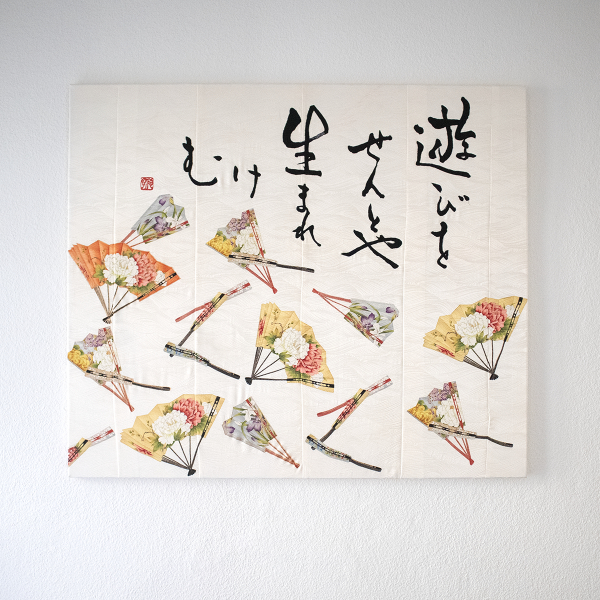 遊びを
せんとや
生まれ
けむ